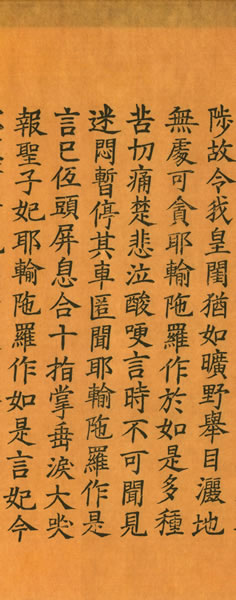 陟故令我皇閨猶如曠野舉目灑地
無處可貪耶輸陁羅作於如是多種
苦切痛楚悲泣酸哽言時不可聞見
迷悶暫停其車匿聞耶輸陁羅作是
言已低頭屏息合十指掌垂淚大哭
報聖子妃耶輸陁羅作如是言妃今